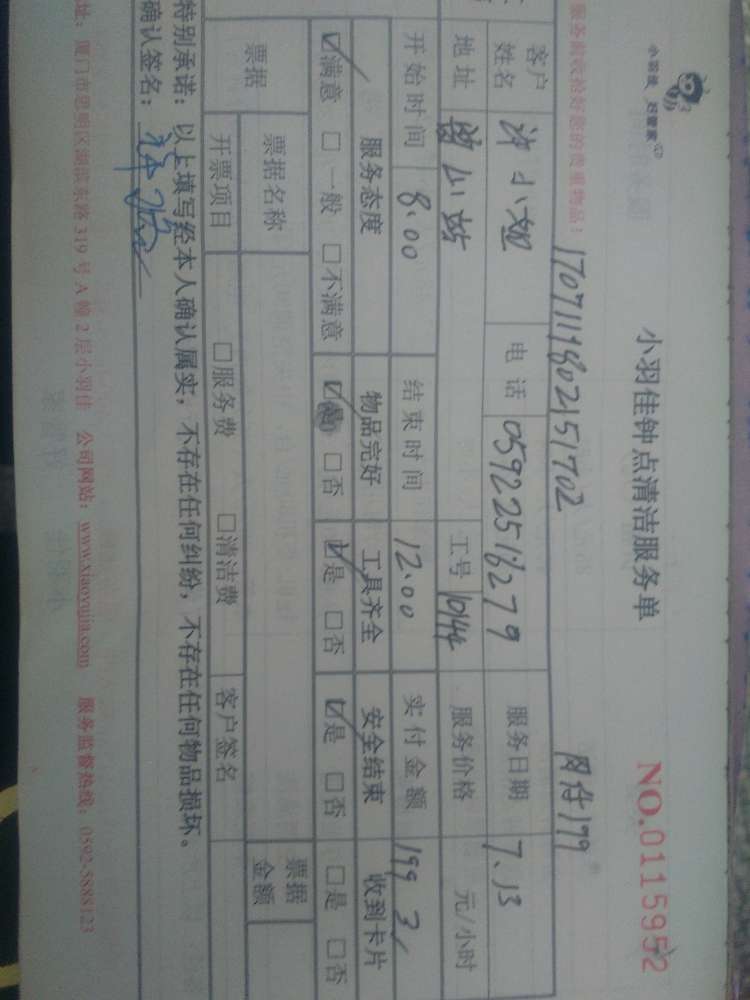 小羽佳 好管家
小羽佳钟点清洁服务单
NO.0115952
1707119802151702
网付199
服务前收拾好您的贵重物品：
客户姓名 许小姐 电话 05922516279 服务日期 7.13
地址 莲山站 工号 10144 服务价格 元/小时
开始时间 8.00 结束时间 12.00 实付金额 199
服务态度 物品完好 工具齐全 安全结束 收到卡片
☑满意 □一般 □不满意 ☑是 □否 ☑是 □否 ☑是 □否 □是 □否
票据 票据名称 票据金额
开票项目 □服务费 □清洁费 客户签名
特别承诺：以上填写经本人确认属实，不存在任何纠纷，不存在任何物品损坏。
确认签名：
址：厦门市思明区湖滨东路319号A幢2层小羽佳 公司网站：www.xiaoyujia.com 服务监督热线：0592-5888123